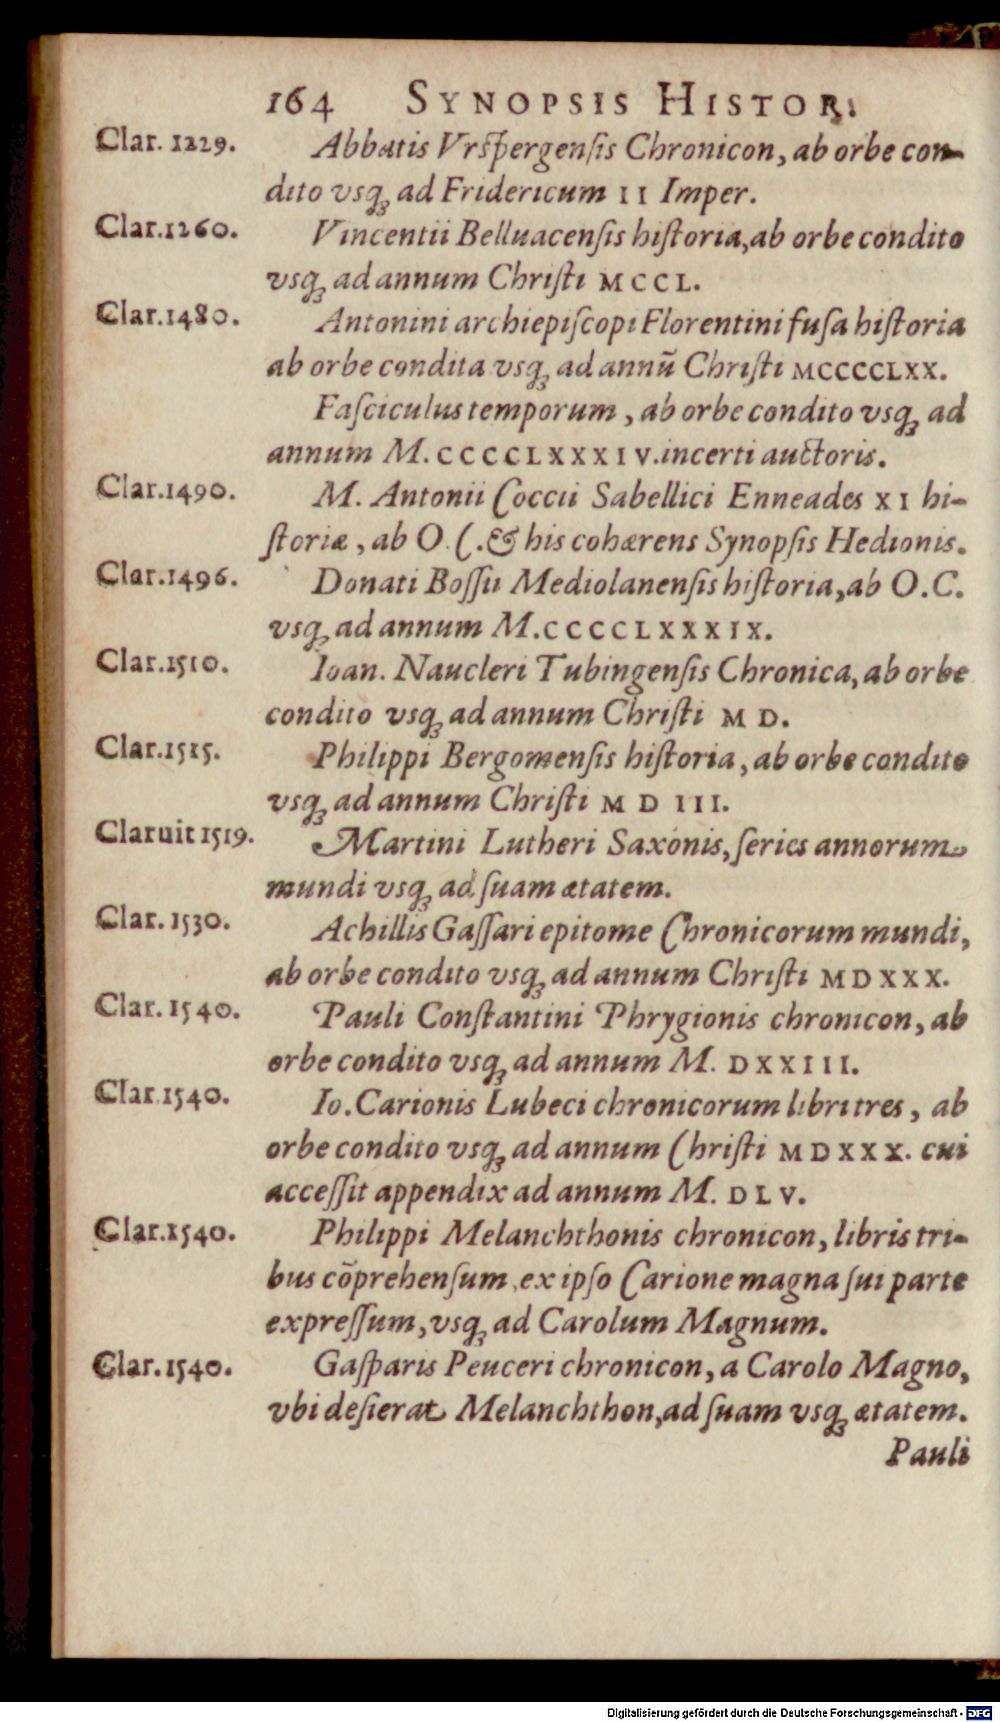 164 SYNOPSIS HISTOR.
Clar. 1229. Abbatis Vrſpergenſis Chronicon, ab orbe con-
dito vsq; ad Fridericum II Imper.
Clar. 1260. Vincentii Belluacenſis hiſtoria, ab orbe condito
vsq; ad annum Chriſti MCCL.
Clar. 1480. Antonini archiepiſcopi Florentini fuſa hiſtoria
ab orbe condita vsq; ad annū Chriſti MCCCCLXX.
Faſciculus temporum, ab orbe condito vsq; ad
annum M. CCCCLXXXIV. incerti auctoris.
Clar. 1490. M. Antonii Coccii Sabellici Enneades XI hi-
ſtoriæ, ab O.C. & his cohærens Synopſis Hedionis.
Clar. 1496. Donati Boſſii Mediolanenſis hiſtoria, ab O.C.
vsq; ad annum M.CCCCLXXXIX.
Clar. 1510. Ioan. Naucleri Tubingenſis Chronica, ab orbe
condito vsq; ad annum Chriſti MD.
Clar. 1515. Philippi Bergomenſis hiſtoria, ab orbe condito
vsq; ad annum Chriſti MDIII.
Claruit 1519. Martini Lutheri Saxonis, ſeries annorum
mundi vsq; ad ſuam ætatem.
Clar. 1530. Achillis Gaſſari epitome Chronicorum mundi,
ab orbe condito vsq; ad annum Chriſti MDXXX.
Clar. 1540. Pauli Conſtantini Phrygionis chronicon, ab
orbe condito vsq; ad annum M. DXXIII.
Clar. 1540. Io. Carionis Lubeci chronicorum libri tres, ab
orbe condito vsq; ad annum Chriſti MDXXX. cui
acceſſit appendix ad annum M. DLV.
Clar. 1540. Philippi Melanchthonis chronicon, libris tri-
bus cōprehenſum, ex ipſo Carione magna ſui parte
expreſſum, vsq; ad Carolum Magnum.
Clar. 1540. Gaſparis Peuceri chronicon, a Carolo Magno,
vbi deſierat Melanchthon, ad ſuam vsq; ætatem.
Pauli
Digitalisierung gefördert durch die Deutsche Forschungsgemeinschaft - DFG